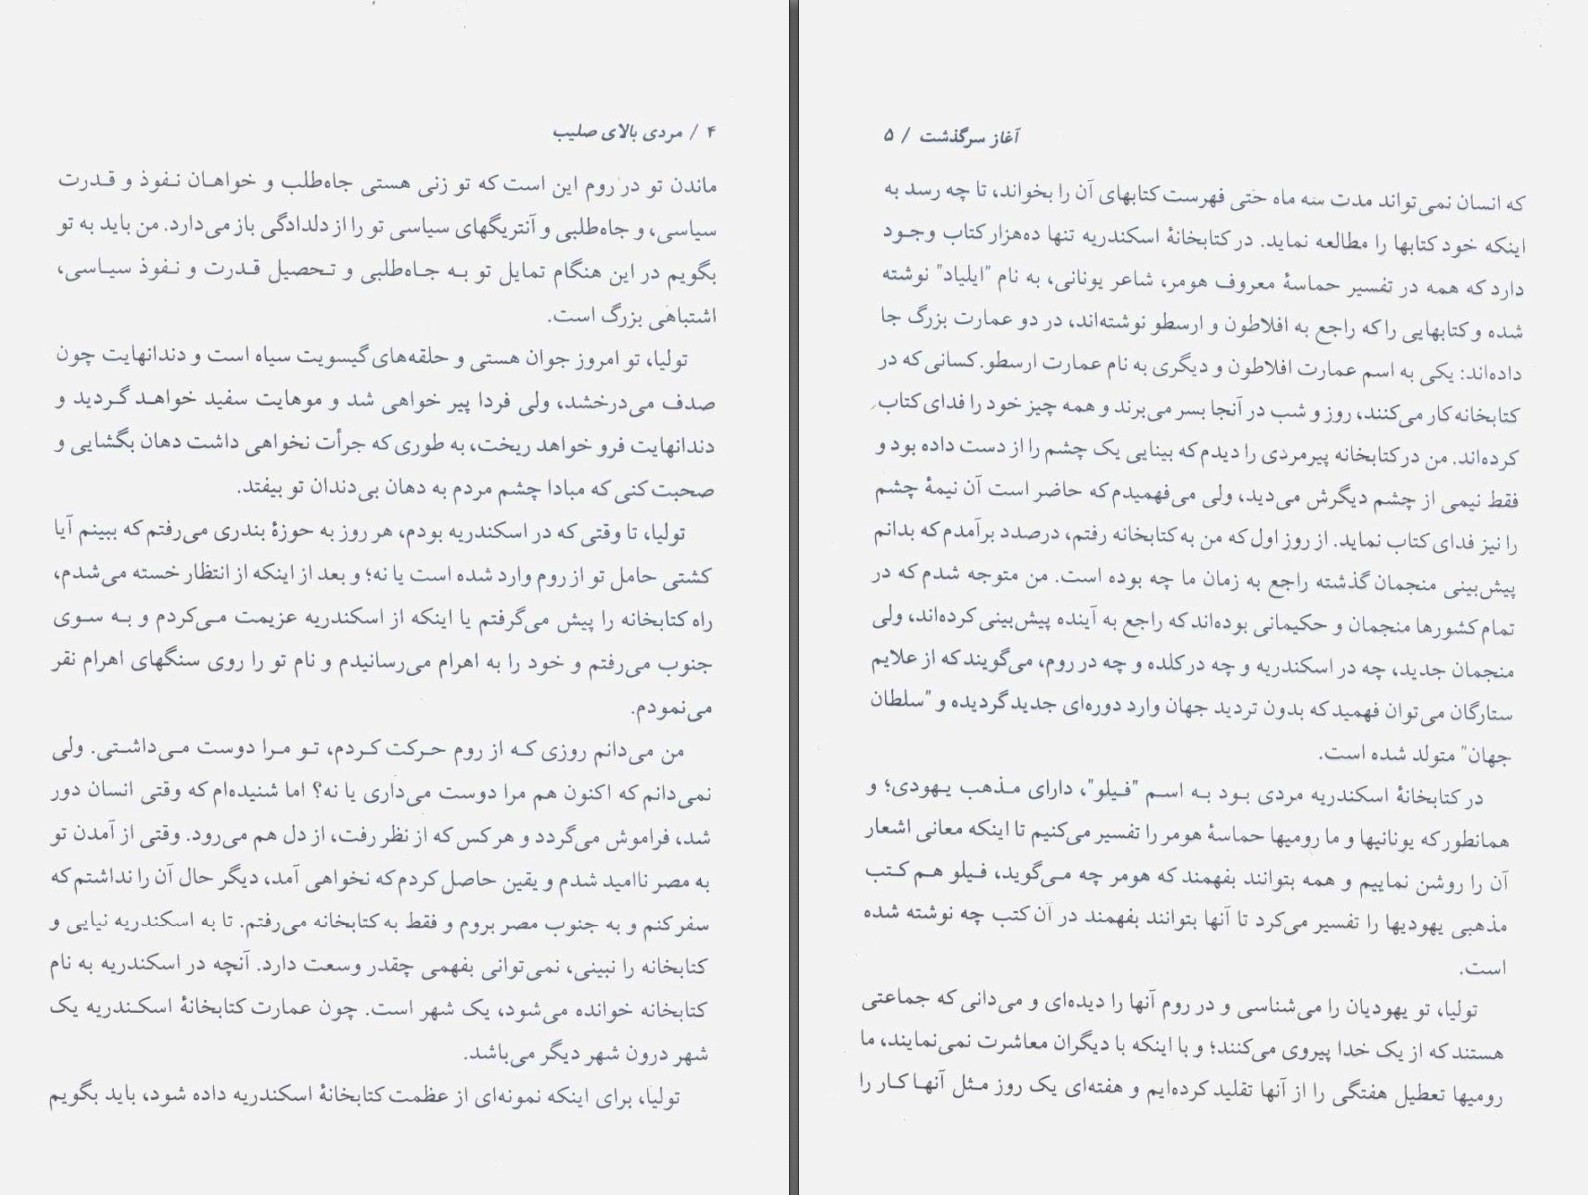 ۴ / مردی بالای صلیب
ماندن تو در روم این است که تو زنی هستی جاه‌طلب و خواهان نفوذ و قدرت
سیاسی، و جاه‌طلبی و آنتریگهای سیاسی تو را از دلدادگی باز می‌دارد. من باید به تو
بگویم در این هنگام تمایل تو به جاه‌طلبی و تحصیل قدرت و نفوذ سیاسی،
اشتباهی بزرگ است.
تولیا، تو امروز جوان هستی و حلقه‌های گیسویت سیاه است و دندانهایت چون
صدف می‌درخشد، ولی فردا پیر خواهی شد و موهایت سفید خواهد گردید و
دندانهایت فرو خواهد ریخت، به طوری که جرأت نخواهی داشت دهان بگشایی و
صحبت کنی که مبادا چشم مردم به دهان بی‌دندان تو بیفتد.
تولیا، تا وقتی که در اسکندریه بودم، هر روز به حوزهٔ بندری می‌رفتم که ببینم آیا
کشتی حامل تو از روم وارد شده است یا نه؛ و بعد از اینکه از انتظار خسته می‌شدم،
راه کتابخانه را پیش می‌گرفتم یا اینکه از اسکندریه عزیمت می‌کردم و به سوی
جنوب می‌رفتم و خود را به اهرام می‌رسانیدم و نام تو را روی سنگهای اهرام نقر
می‌نمودم.
من می‌دانم روزی که از روم حرکت کردم، تو مرا دوست می‌داشتی. ولی
نمی‌دانم که اکنون هم مرا دوست می‌داری یا نه؟ اما شنیده‌ام که وقتی انسان دور
شد، فراموش می‌گردد و هر کس که از نظر رفت، از دل هم می‌رود. وقتی از آمدن تو
به مصر ناامید شدم و یقین حاصل کردم که نخواهی آمد، دیگر حال آن را نداشتم که
سفر کنم و به جنوب مصر بروم و فقط به کتابخانه می‌رفتم. تا به اسکندریه نیایی و
کتابخانه را نبینی، نمی‌توانی بفهمی چقدر وسعت دارد. آنچه در اسکندریه به نام
کتابخانه خوانده می‌شود، یک شهر است. چون عمارت کتابخانهٔ اسکندریه یک
شهر درون شهر دیگر می‌باشد.
تولیا، برای اینکه نمونه‌ای از عظمت کتابخانهٔ اسکندریه داده شود، باید بگویم
آغاز سرگذشت / ۵
که انسان نمی‌تواند مدت سه ماه حتی فهرست کتابهای آن را بخواند، تا چه رسد به
اینکه خود کتابها را مطالعه نماید. در کتابخانهٔ اسکندریه تنها ده‌هزار کتاب وجود
دارد که همه در تفسیر حماسهٔ معروف هومر، شاعر یونانی، به نام "ایلیاد" نوشته
شده و کتابهایی را که راجع به افلاطون و ارسطو نوشته‌اند، در دو عمارت بزرگ جا
داده‌اند: یکی به اسم عمارت افلاطون و دیگری به نام عمارت ارسطو. کسانی که در
کتابخانه کار می‌کنند، روز و شب در آنجا بسر می‌برند و همه چیز خود را فدای کتاب
کرده‌اند. من در کتابخانه پیرمردی را دیدم که بینایی یک چشم را از دست داده بود و
فقط نیمی از چشم دیگرش می‌دید، ولی می‌فهمیدم که حاضر است آن نیمهٔ چشم
را نیز فدای کتاب نماید. از روز اول که من به کتابخانه رفتم، درصدد برآمدم که بدانم
پیش‌بینی منجمان گذشته راجع به زمان ما چه بوده است. من متوجه شدم که در
تمام کشورها منجمان و حکیمانی بوده‌اند که راجع به آینده پیش‌بینی کرده‌اند، ولی
منجمان جدید، چه در اسکندریه و چه در کلده و چه در روم، می‌گویند که از علایم
ستارگان می‌توان فهمید که بدون تردید جهان وارد دوره‌ای جدید گردیده و "سلطان
جهان" متولد شده است.
در کتابخانهٔ اسکندریه مردی بود به اسم "فیلو"، دارای مذهب یهودی؛ و
همانطور که یونانیها و ما رومیها حماسهٔ هومر را تفسیر می‌کنیم تا اینکه معانی اشعار
آن را روشن نماییم و همه بتوانند بفهمند که هومر چه می‌گوید، فیلو هم کتب
مذهبی یهودیها را تفسیر می‌کرد تا آنها بتوانند بفهمند در آن کتب چه نوشته شده
است.
تولیا، تو یهودیان را می‌شناسی و در روم آنها را دیده‌ای و می‌دانی که جماعتی
هستند که از یک خدا پیروی می‌کنند؛ و با اینکه با دیگران معاشرت نمی‌نمایند، ما
رومیها تعطیل هفتگی را از آنها تقلید کرده‌ایم و هفته‌ای یک روز مثل آنها کار را